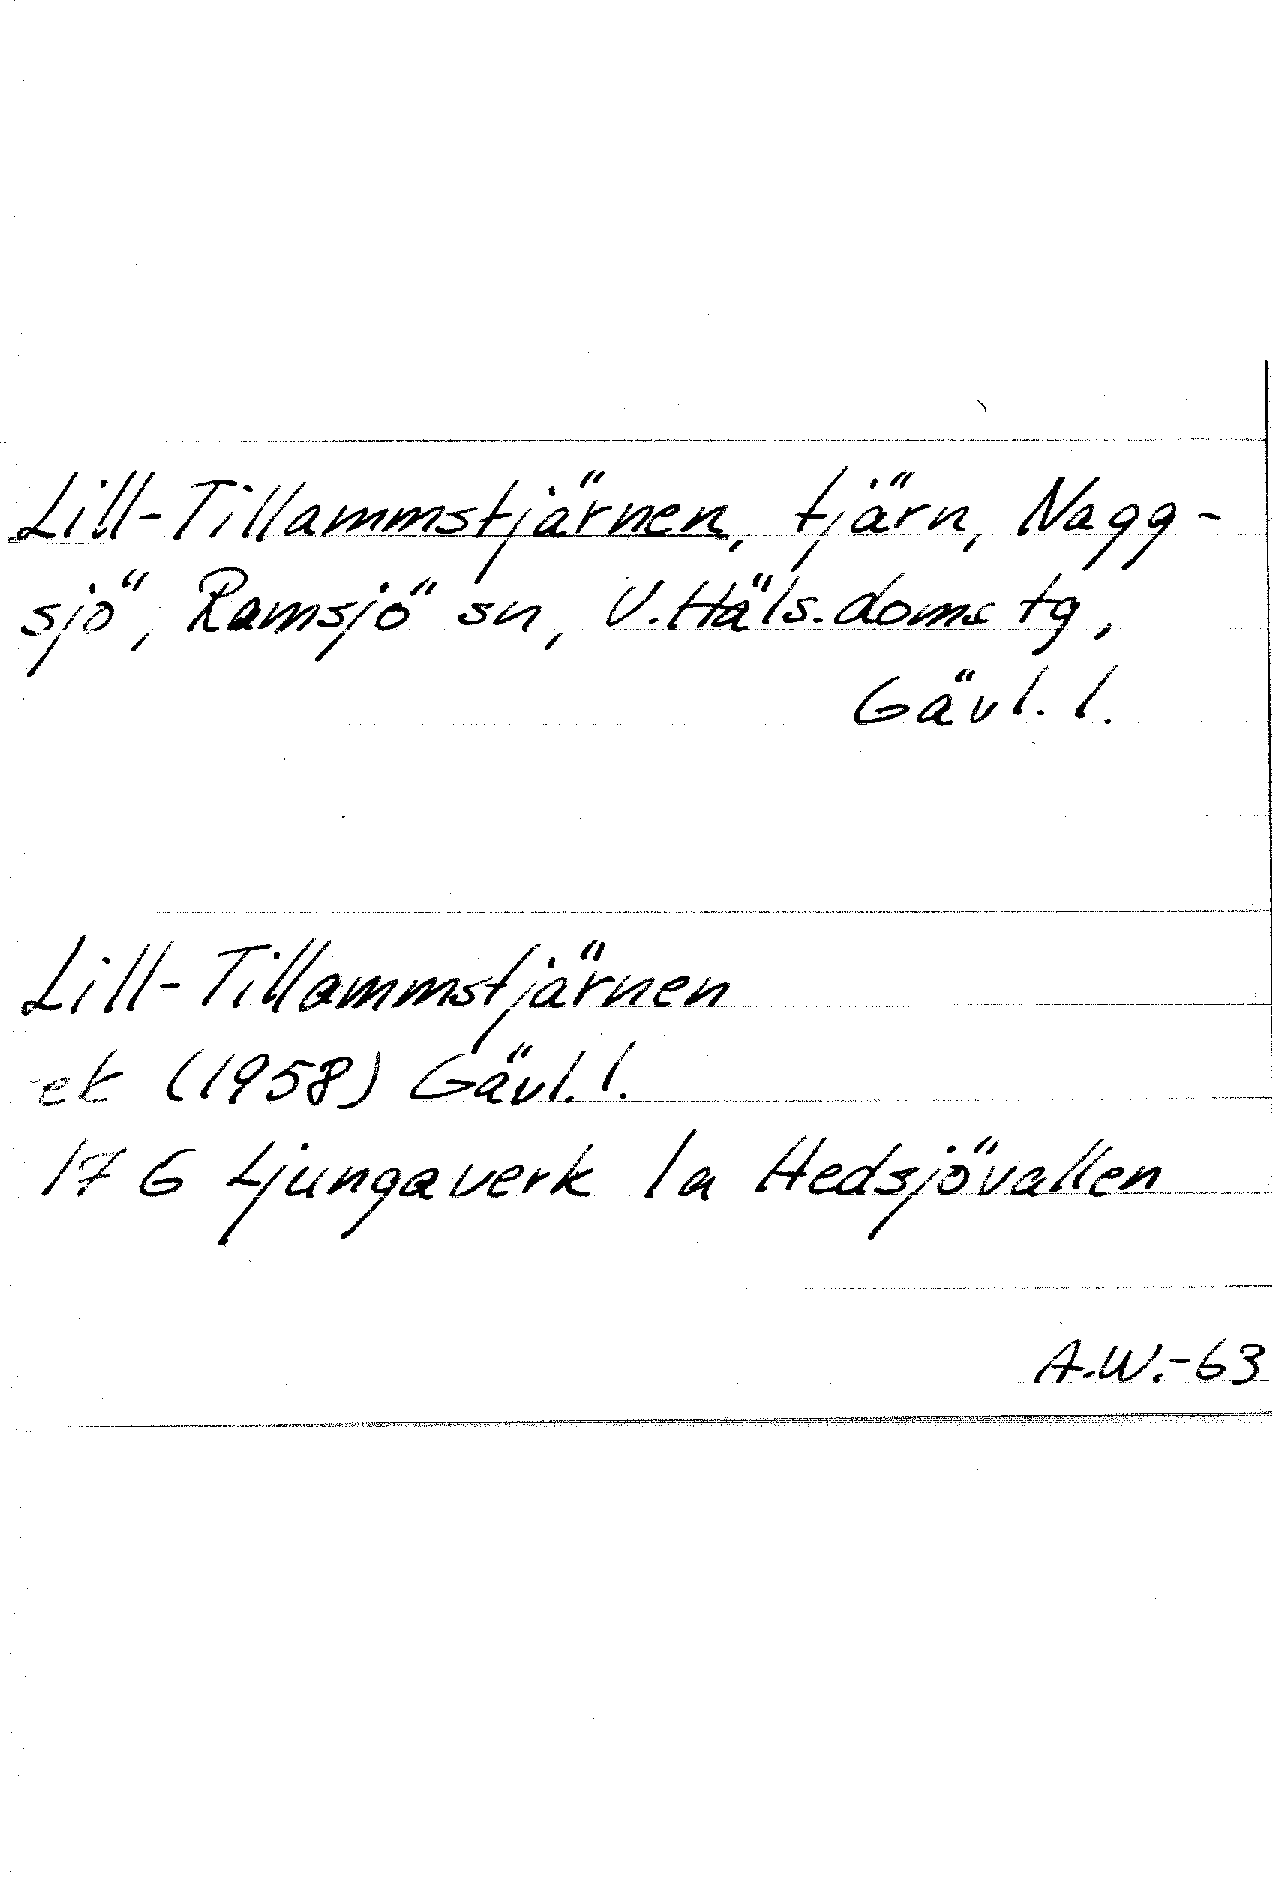 Lill-Tillammstjärnen, tjärn, Nagg-
sjö, Ramsjö sn, V.Häls.doms tg,
Gävl. l.
Lill-Tillammstjärnen
ek (1958) Gävl. l.
17 G Ljungaverk 1a Hedsjövallen
A.W.-63